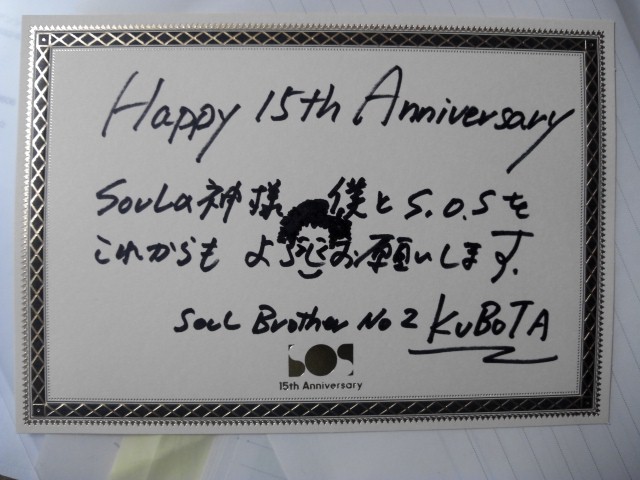 Happy 15th Anniversary
Soulの神様 僕とS.O.Sを
これからも よろしくお願いします。
Soul Brother No2 KUBOTA
SOS
15th Anniversary